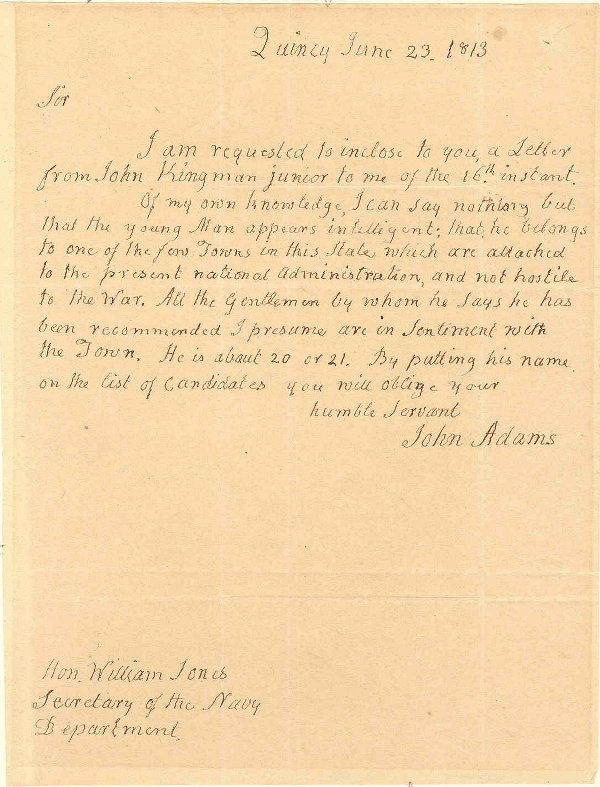 Quincy June 23. 1813
Sir
I am requested to inclose to you, a Letter
from John Kingman junior to me of the 16th. instant.
Of my own knowledge, I can say nothing but
that the young Man appears intelligent; that he belongs
to one of the few Towns in this State, which are attached
to the present national administration, and not hostile
to the War. All the Gentlemen by whom he says he has
been recommended I presume are in Sentiment with
the Town. He is about 20 or 21. By putting his name
on the list of Candidates you will oblige your
humble Servant
John Adams
Hon. William Jones
Secretary of the Navy
Department.